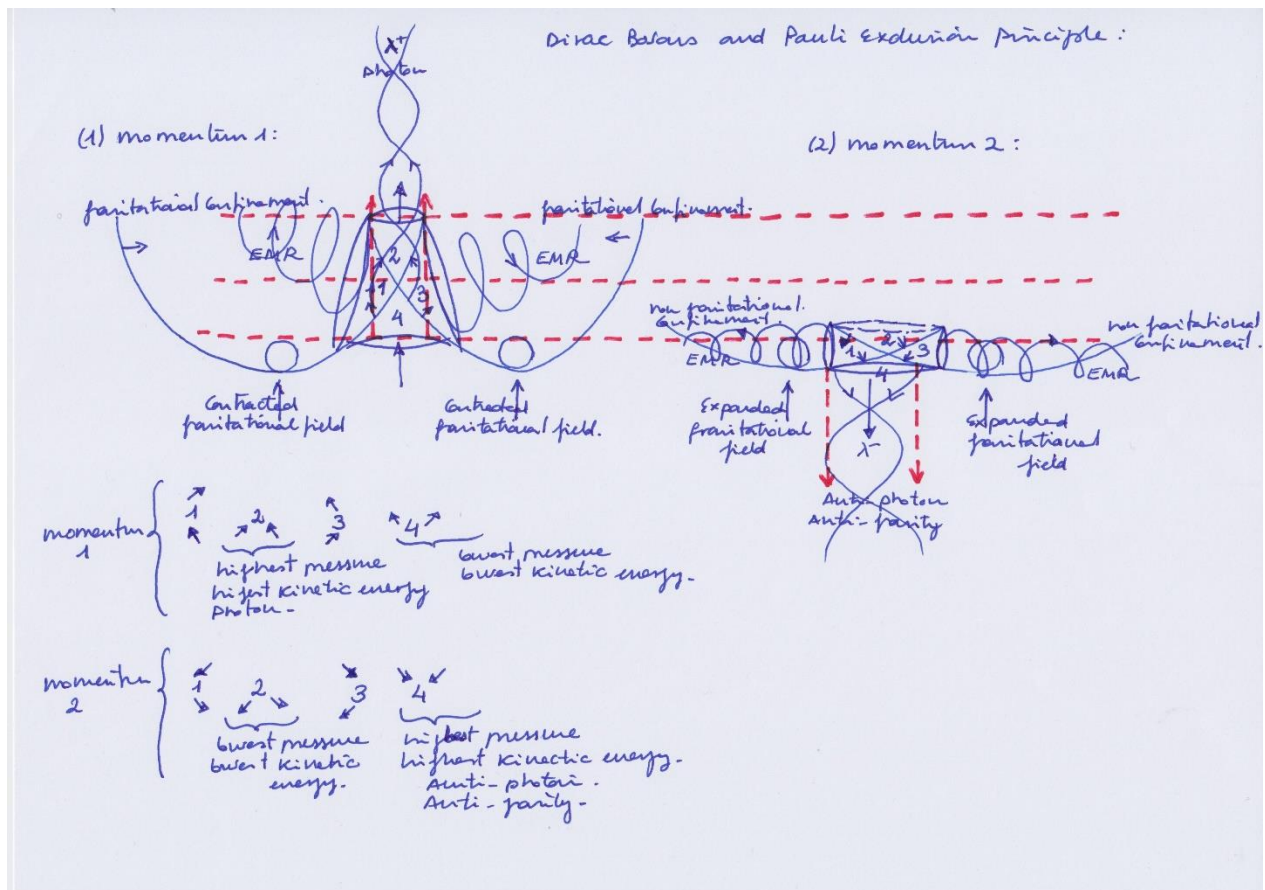 Dirac Bosons and Pauli Exclusion principle:
λ+
photon
(1) momentum 1:
(2) momentum 2:
gravitational confinament.
gravitational confinament.
EMR
EMR
2
1
3
4
non gravitational
confinement.
non gravitational
confinement.
EMR
EMR
1
2
3
4
Contracted
gravitational field
Contracted
gravitational field.
Expanded
gravitational
field
Expanded
gravitational
field
λ-
Anti-photon
Anti-parity
momentum
1
1
2
3
4
highest pressure
highest kinetic energy
photon-
lowest pressure
lowest kinetic energy-
momentum
2
1
2
3
4
lowest pressure
lowest kinetic
energy-
highest pressure
highest kinectic energy-
Anti-photon-
Anti-parity-